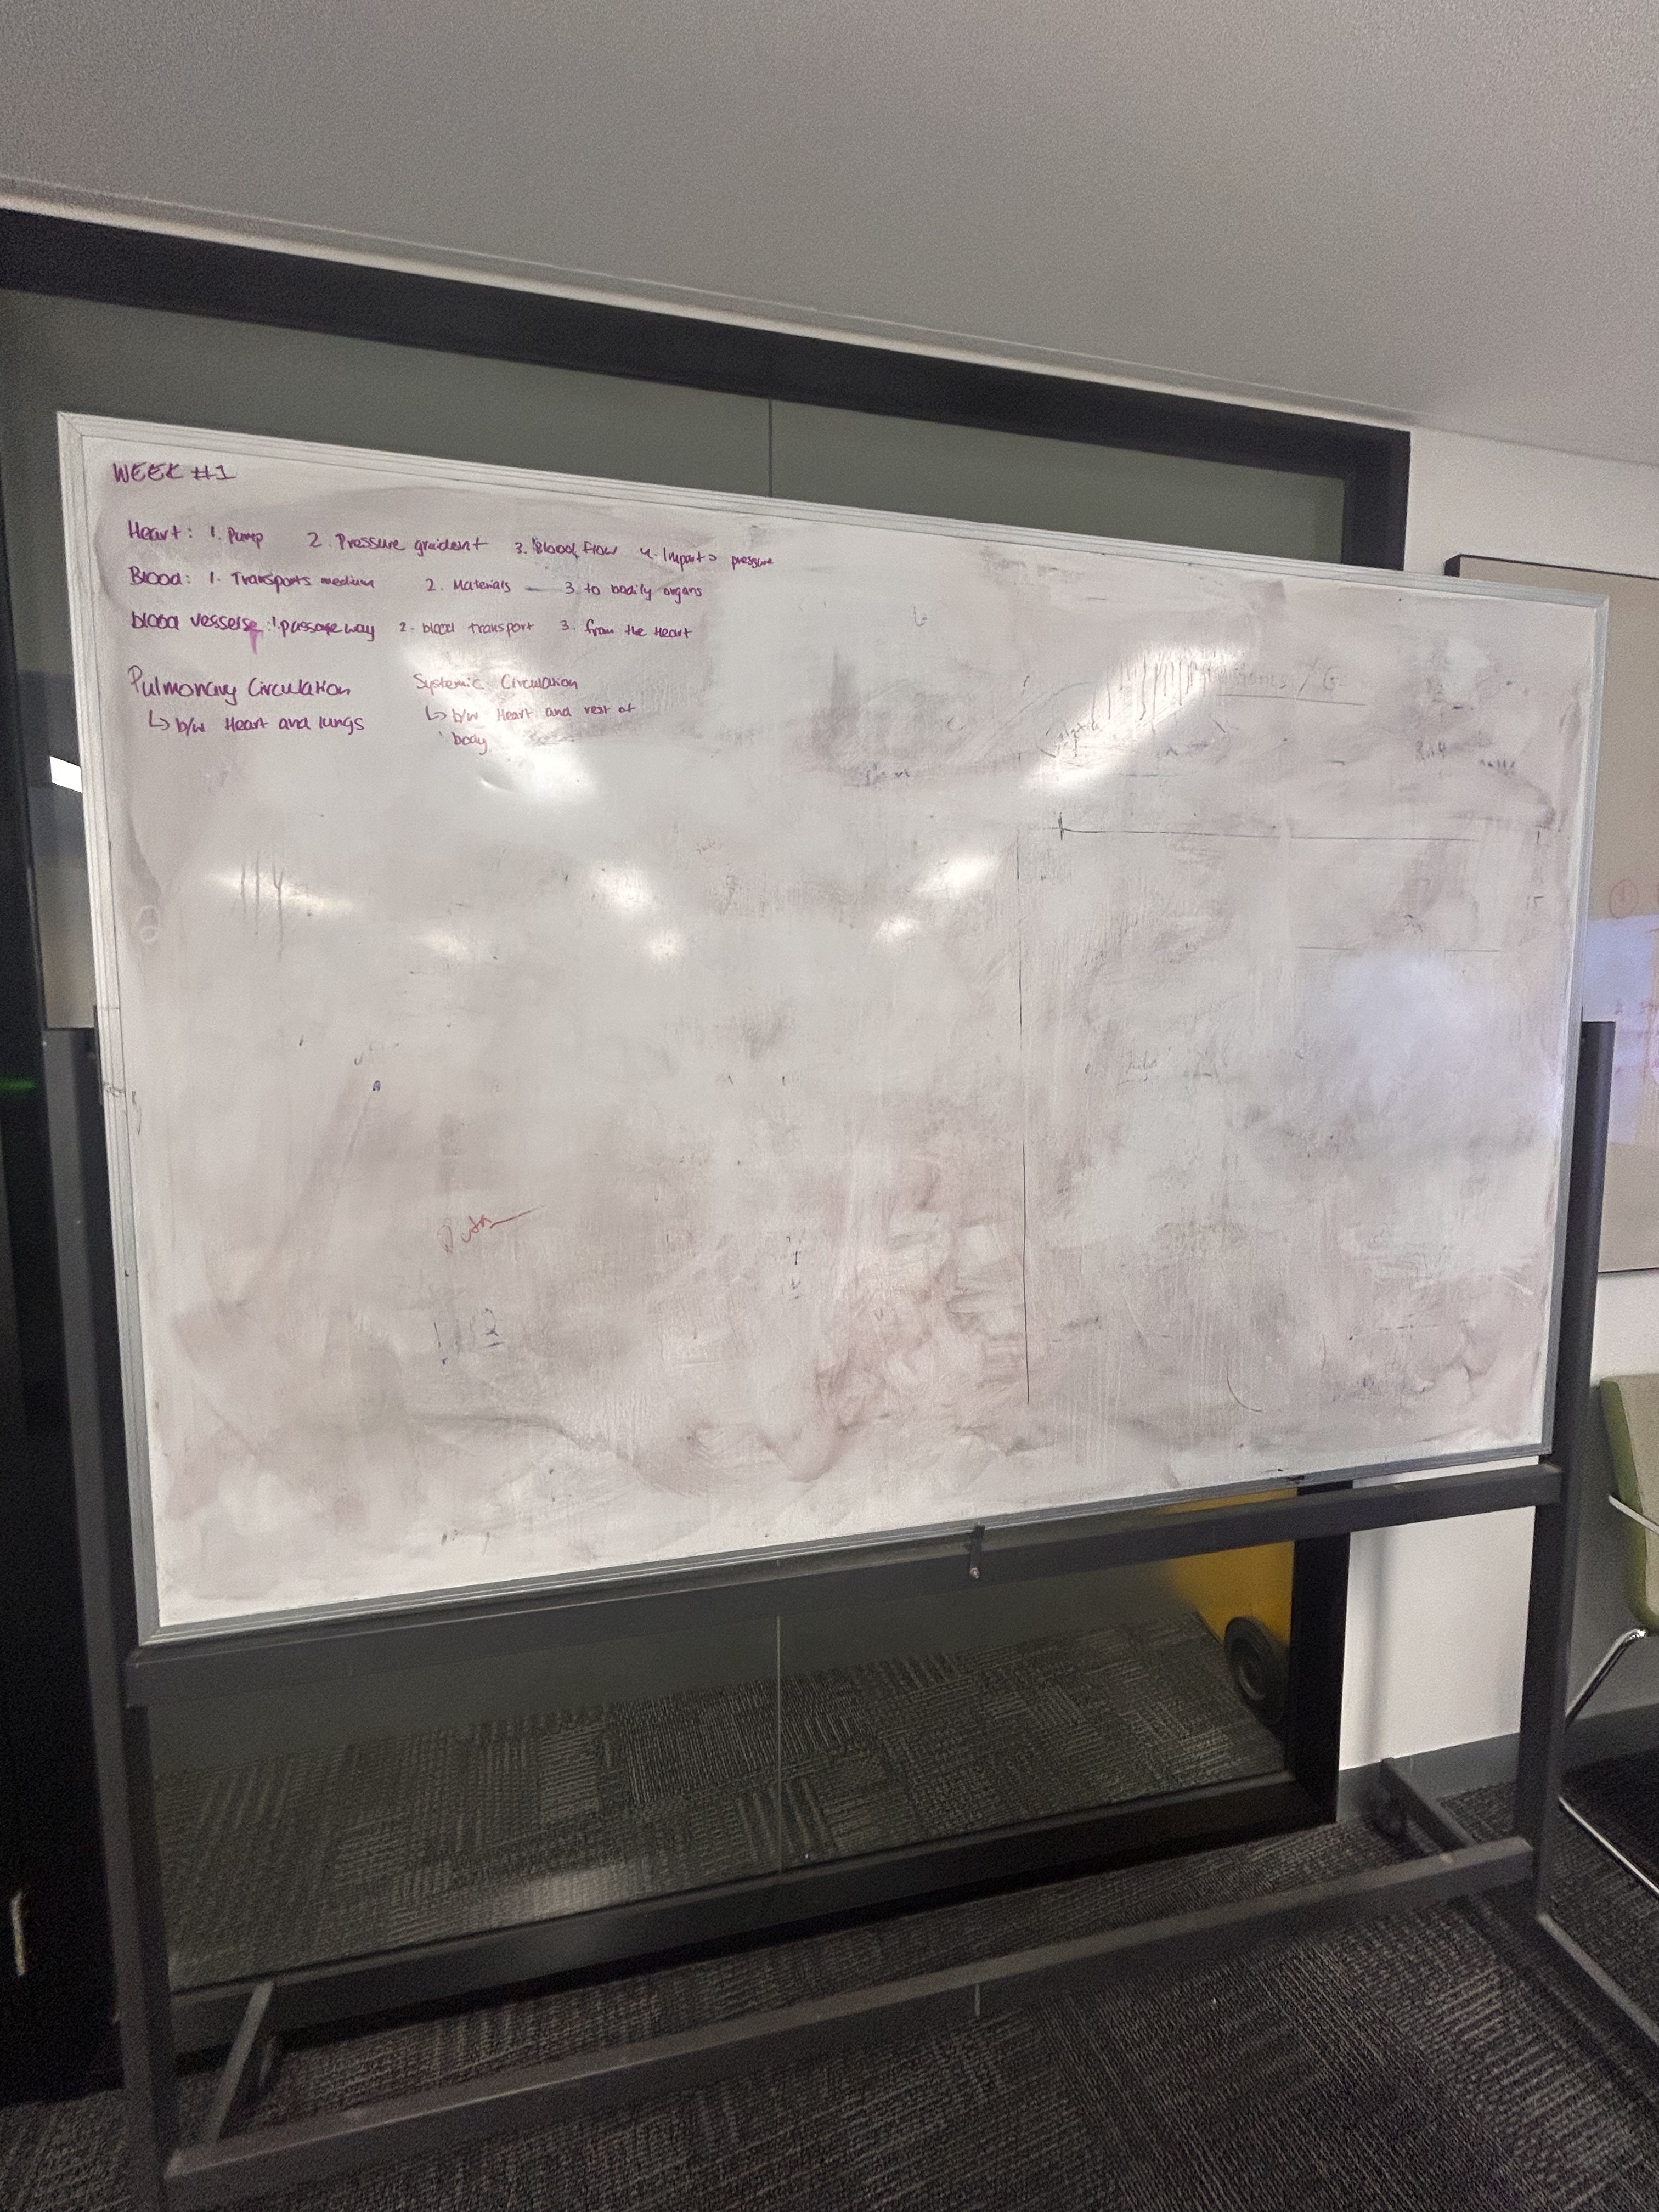 WEEK #1
Heart: 1. Pump 2. Pressure graident 3. Blood Flow 4. Imparts pressure
Blood: 1. Transports medium 2. Materials — 3. to bodily organs
blood vessels: 1. passageway 2. blood transport 3. from the Heart
Pulmonary Circulation Systemic Circulation
↳ b/w Heart and lungs ↳ b/w Heart and rest of
body